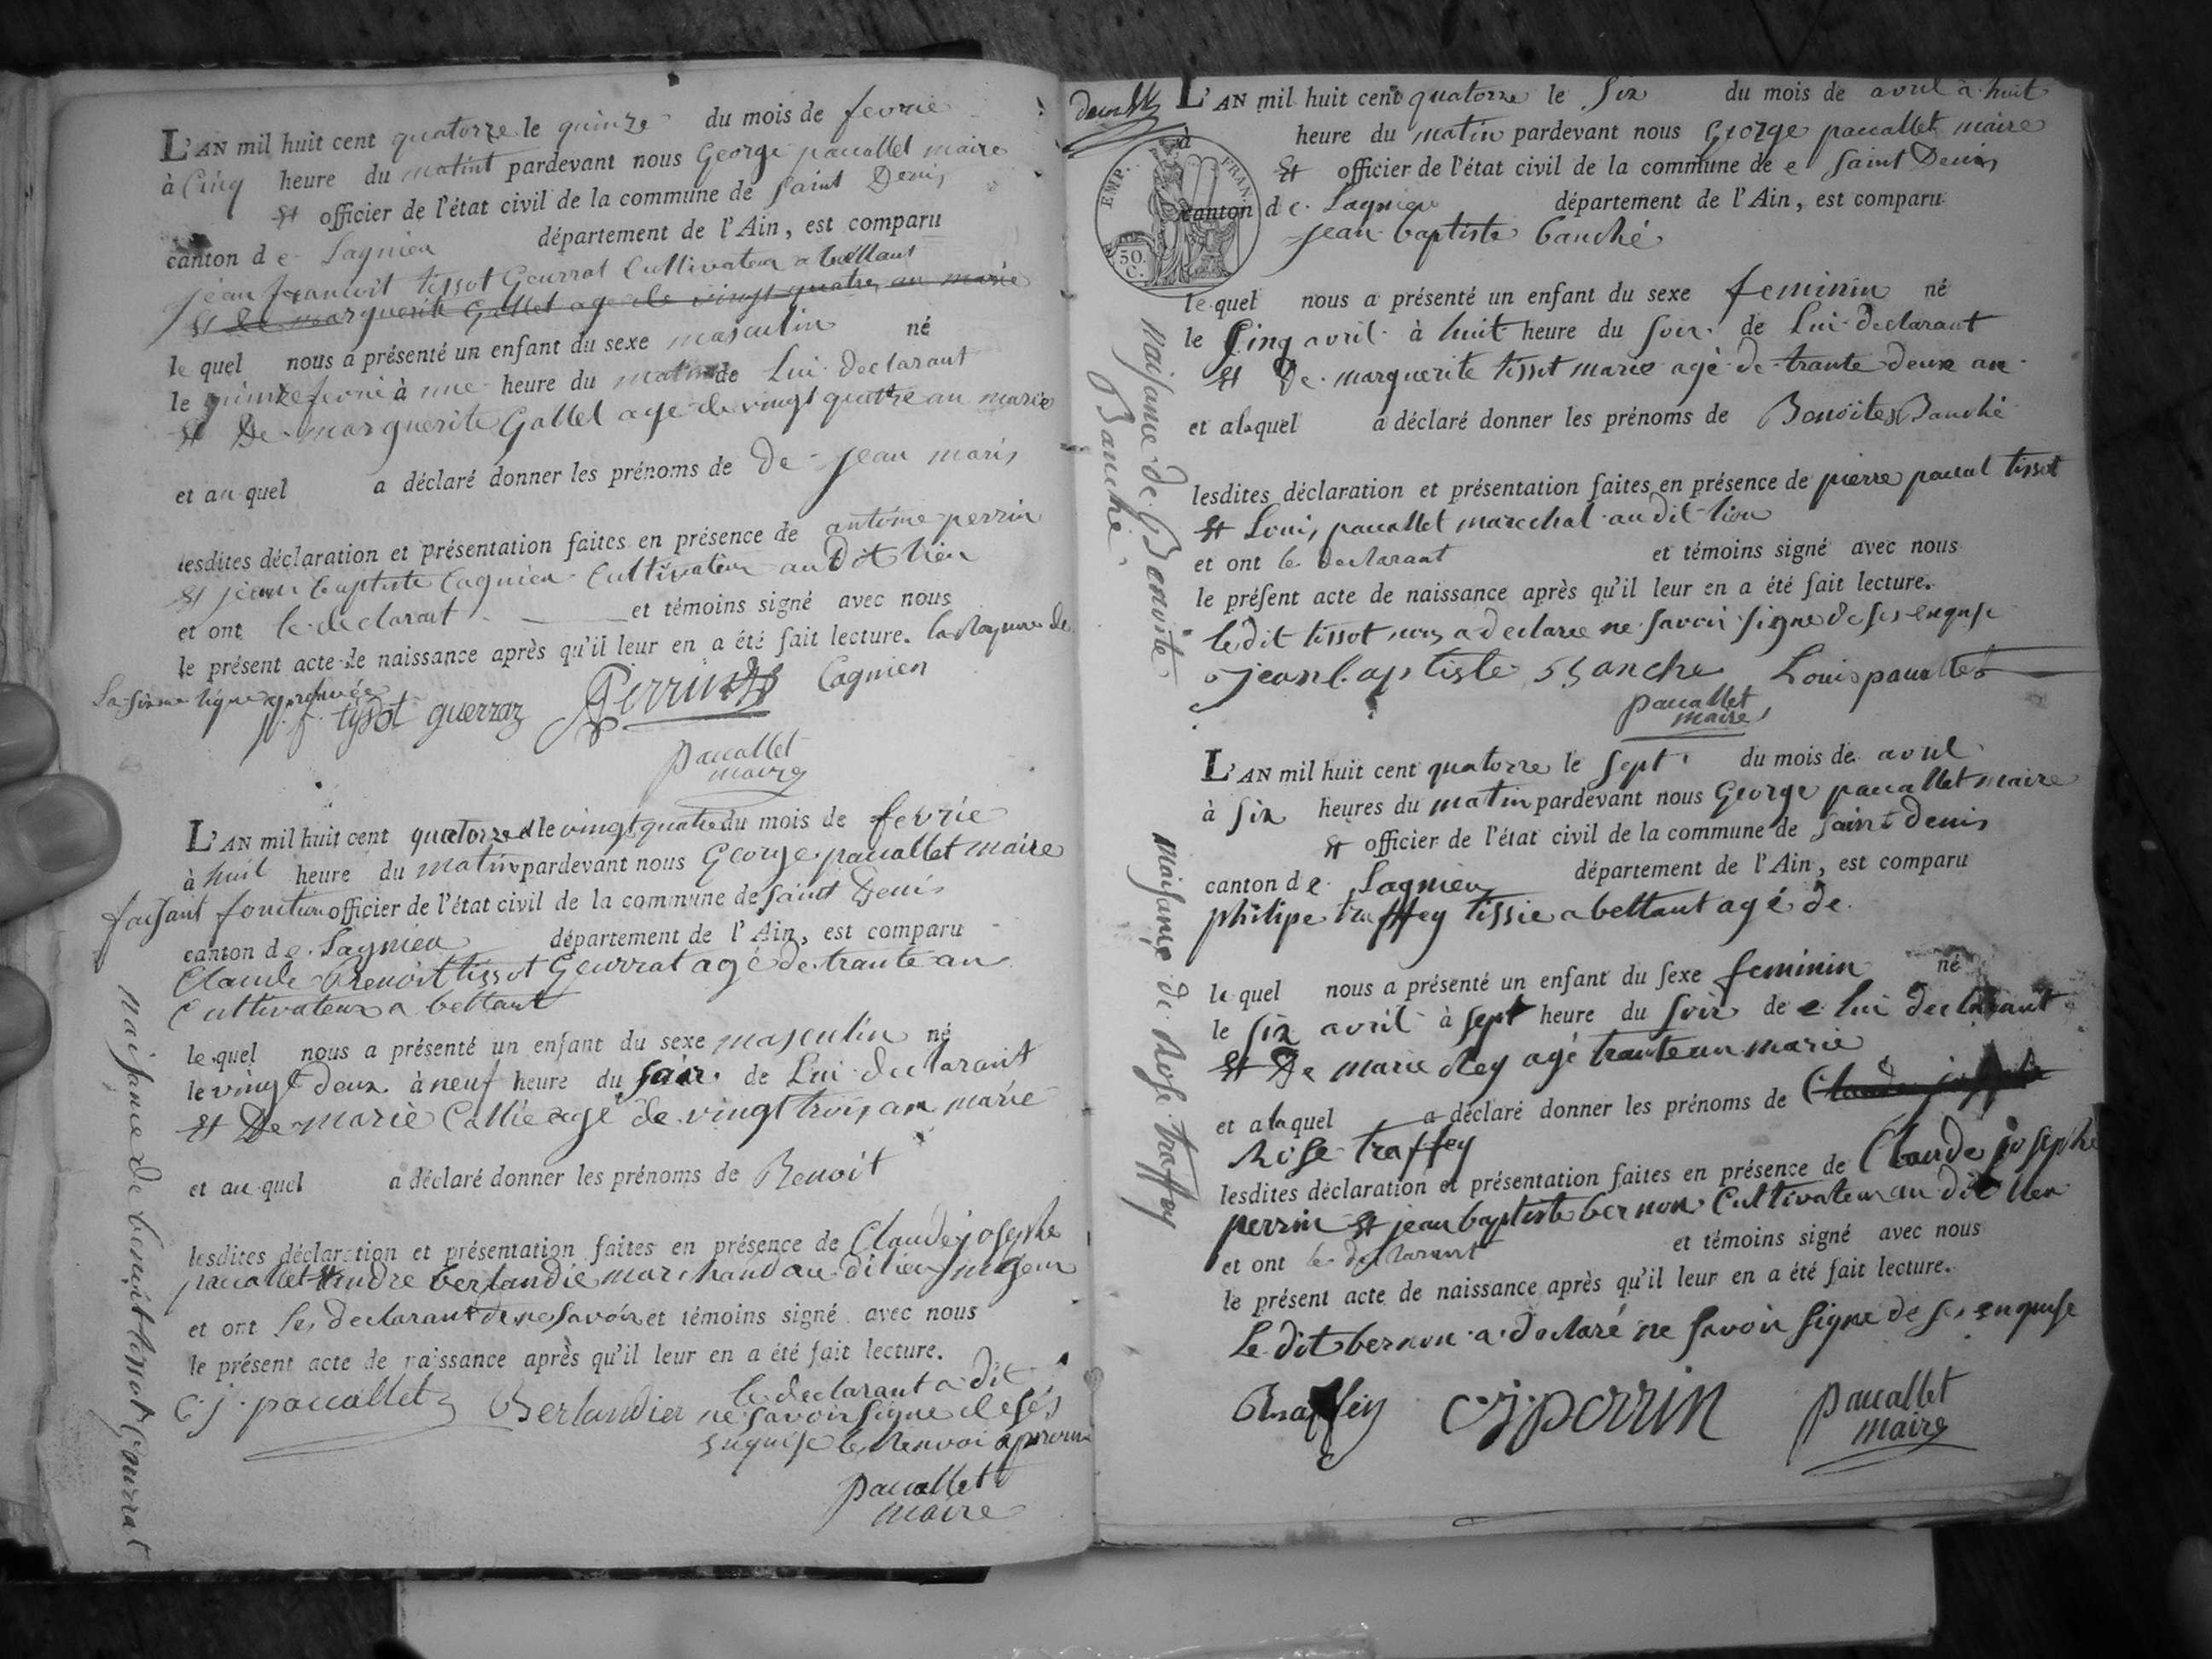 L'AN mil huit cent quatorze le quinze du mois de fevrie
à Cinq heure du matint pardevant nous George paucallet maire
et officier de l'état civil de la commune de saint Denis
canton de Lagnieu département de l'Ain, est comparu
jean francoit tissot Gourrat Cultivateur a bettant
et de marguerite Gallet age de vingt quatre an marie
le quel nous a présenté un enfant du sexe masculin né
le quinze fevrie à une heure du matin de Lui declarant
et De marguerite Gallet age de vingt quatre an marie
et au quel a déclaré donner les prénoms de De jean maris
lesdites déclaration et présentation faites en présence de antoine perrin
et jean baptiste Cagnien Cultivateur au Dit lieu
et ont le declarant et témoins signé avec nous
le présent acte de naissance après qu'il leur en a été fait lecture. la Rayure de
La sixme ligne aprouvée
j. f. tyssot guerraz Perrin Cagnien
paucallet
maire
L'AN mil huit cent quatorze le vingt quatre du mois de fevrie
à huit heure du matin pardevant nous George paucallet maire
faisant fonction officier de l'état civil de la commune de saint Denis
canton de Lagnieu département de l'Ain, est comparu
Claude Benoit tissot Gourrat agé de trante an
Cultivateur a bettant
le quel nous a présenté un enfant du sexe masculin né
le vingt deux à neuf heure du soir de Lui declarant
et De marie Callie agé de vingt trois an marie
et au quel a déclaré donner les prénoms de Benoit
lesdites déclaration et présentation faites en présence de Claude josephe
paucallet et andre berlandie marchand au dit lieu
et ont Les declarant de ne savoir et témoins signé avec nous
le présent acte de naissance après qu'il leur en a été fait lecture.
c. j. paucallet Berlandier le declarant a dit
ne savoir signe de ses
enquise le Renvoi aprouve
paucallet
maire
naisance de benoit tissot Gourrat
L'AN mil huit cent quatorze le six du mois de avril a huit
à heure du matin pardevant nous George paucallet maire
et officier de l'état civil de la commune de saint Denis
canton de Lagnieu département de l'Ain, est comparu
jean baptiste banché
EMP. FRAN.
50
C.
le quel nous a présenté un enfant du sexe feminin né
le Cinq avril à huit heure du soir de Lui declarant
et De marguerite tissot marie agé de trante deux an
et a laquel a déclaré donner les prénoms de Benoite Banché
lesdites déclaration et présentation faites en présence de pierre pascal tissot
et Louis paucallet marechal au dit lieu
et ont le declarant et témoins signé avec nous
le présent acte de naissance après qu'il leur en a été fait lecture.
ledit tissot nous a declaree ne savoir signe de ses enquise
jean baptiste Banche Louis paucallet
paucallet
maire
naisance de Benoite
Banché
L'AN mil huit cent quatorze le sept du mois de avril
à six heures du matin pardevant nous George paucallet maire
et officier de l'état civil de la commune de saint denis
canton de Lagnieu département de l'Ain, est comparu
philipe traffey tissie a bettant agé de
le quel nous a présenté un enfant du sexe feminin né
le six avril à sept heure du soir de Lui declarant
et De marie Rey agé trante an marie
et a la quel a déclaré donner les prénoms de Claude josephe
Rose traffey
lesdites déclaration et présentation faites en présence de Claude josephe
perrin et jean baptiste bernon Cultivateur au dit lieu
et ont le declarant et témoins signé avec nous
le présent acte de naissance après qu'il leur en a été fait lecture.
Le dit bernon a declaré ne savoir signe de ses enquise
traffey c j perrin paucallet
maire
naisance de Rose traffey